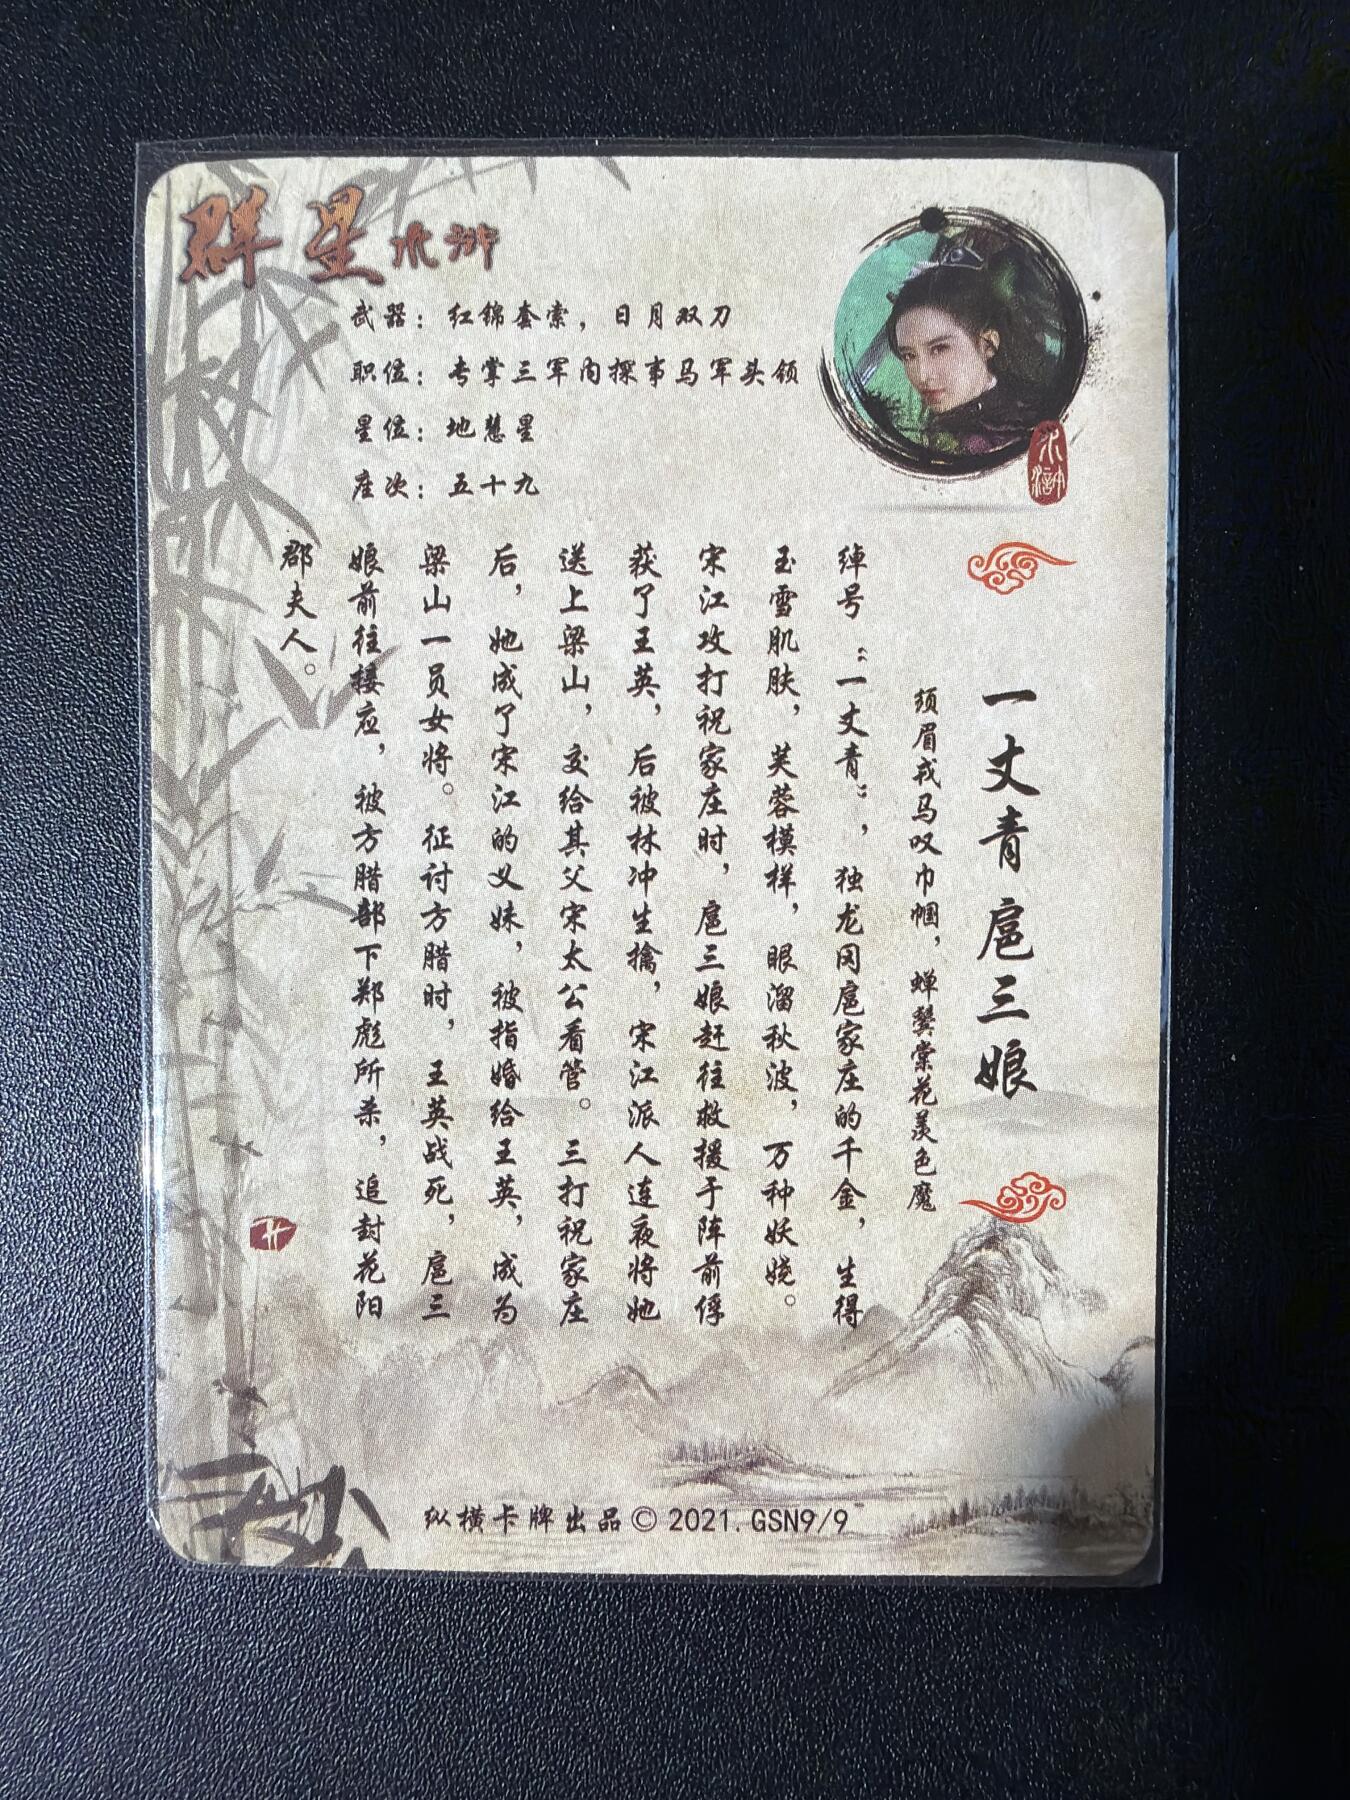 群星水浒
武器：红锦套索，日月双刀
职位：专掌三军内探事马军头领
星位：地慧星
座次：五十九
水浒
一丈青扈三娘
须眉戎马叹巾帼，蝉鬓棠花羡色魔
绰号：“一丈青”，独龙冈扈家庄的千金，生得
玉雪肌肤，芙蓉模样，眼溜秋波，万种妖娆。
宋江攻打祝家庄时，扈三娘赶往救援于阵前俘
获了王英，后被林冲生擒，宋江派人连夜将她
送上梁山，交给其父宋太公看管。三打祝家庄
后，她成了宋江的义妹，被指婚给王英，成为
梁山一员女将。征讨方腊时，王英战死，扈三
娘前往接应，被方腊部下郑彪所杀，追封花阳
郡夫人。
纵横卡牌出品©2021.GSN9/9